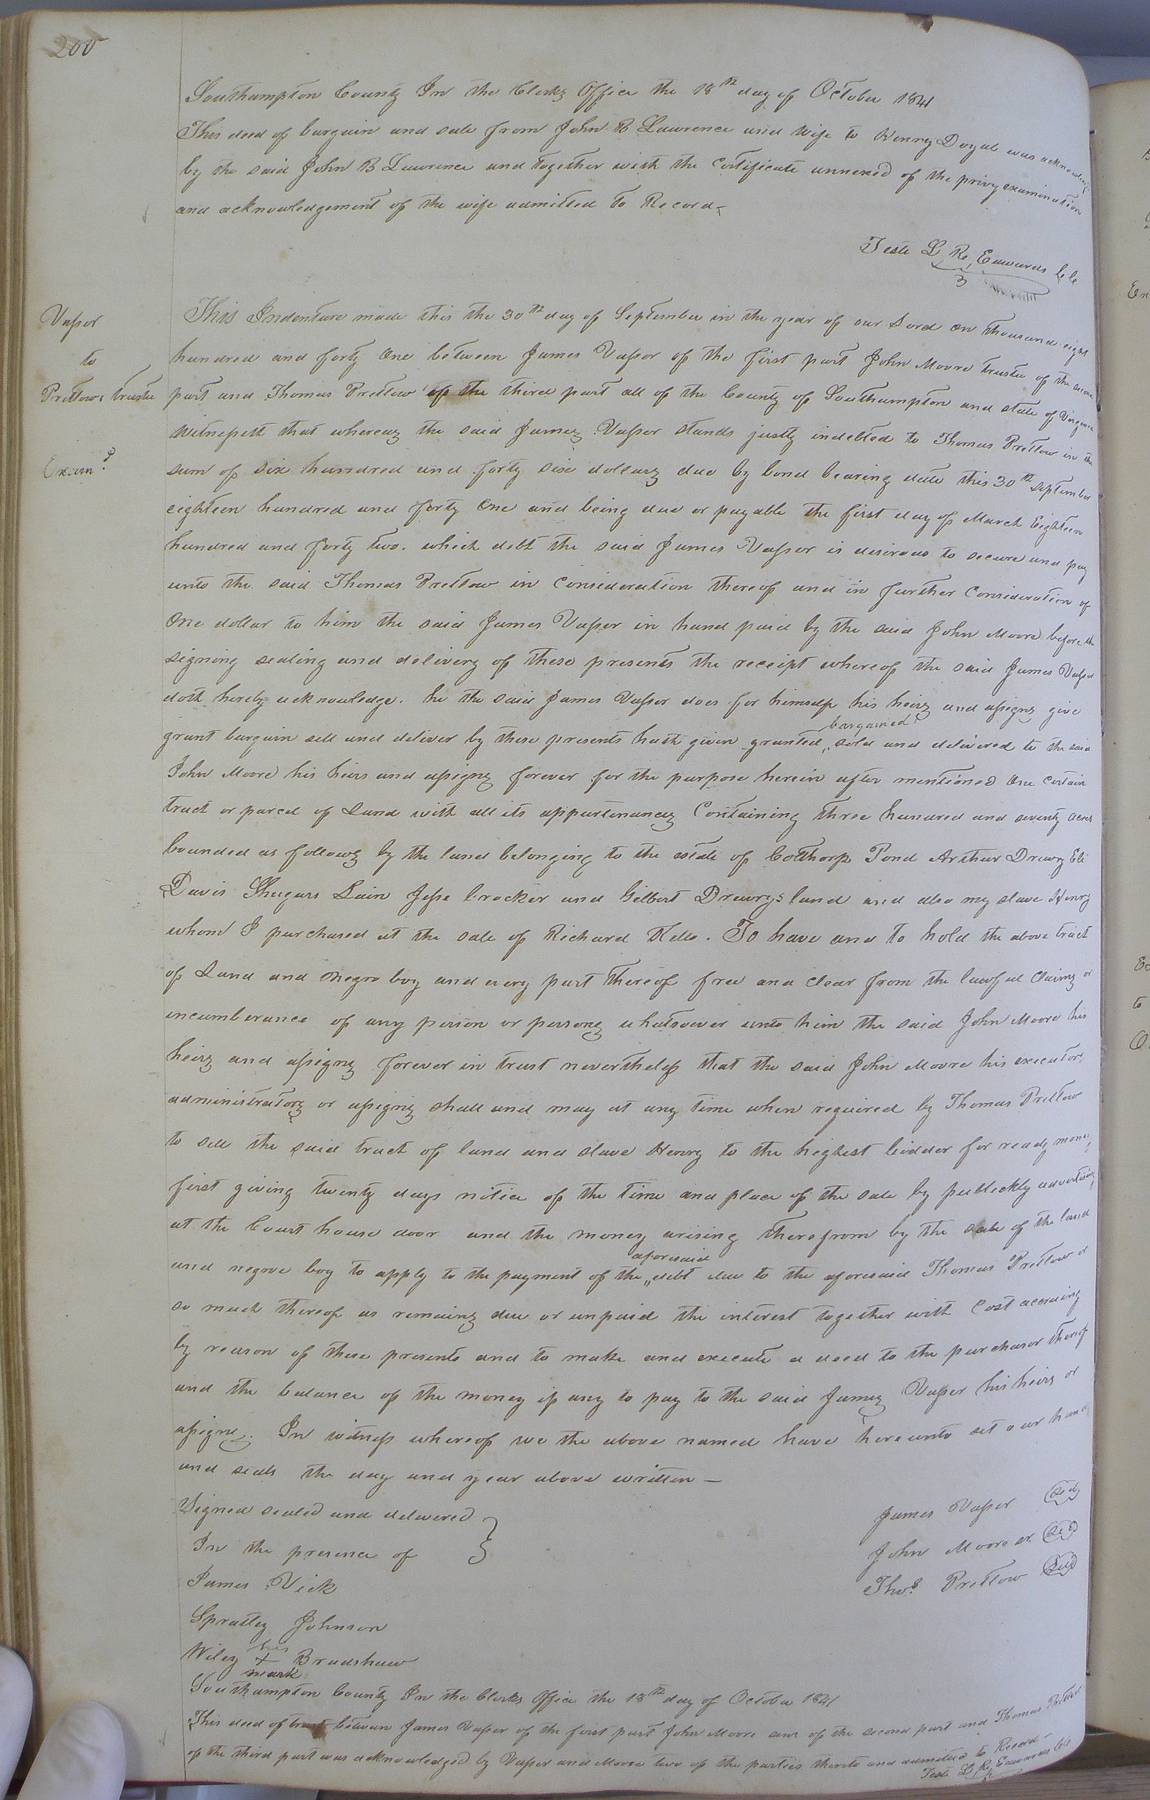 200
Southampton County In the Clerks Office the 18th day of October 1841
This deed of bargain and sale from John B Lawrence and wife to Henry Doyal was acknowledged
by the said John B Lawrence and together with the Certificate annexed of the privy examination
and acknowledgement of the wife admitted to Record
Teste L R Edwards Clk
Vasser
to
Pretlows trustee
Examd
This Indenture made this the 30th day of September in the year of our Lord on thousand eight
hundred and forty One between James Vasser of the first part John Moore trustee of the second
part and Thomas Pretlow of the third part all of the County of Southampton and state of Virginia
Witnesseth that whereas the said James Vasser stands justly indebted to Thomas Pretlow in the
sum of six hundred and forty six dollars due by bond bearing date this 30th September
eighteen hundred and forty One and being due or payable the first day of March Eighteen
hundred and forty two. which debt the said James Vasser is desirous to secure and pay
unto the said Thomas Pretlow in Consideration thereof and in further Consideration of
One dollar to him the said James Vasser in hand paid by the said John Moore before the
signing sealing and delivery of these presents the receipt whereof the said James Vasser
doth hereby acknowledge. he the said James Vasser does for himself his heirs and assigns give
grant bargain sell and deliver by these presents hath given granted, bargained sold and delivered to the said
John Moore his heirs and assigns forever for the purpose herein after mentioned One certain
tract or parcel of Land with all its appurtenances Containing three hundred and seventy acres
bounded as follows by the land belonging to the estate of Colthorp Pond Arthur Drewry Eli
Davis Shugars Lain Jesse Crocker and Gilbert Drewrys land and also my slave Henry
whom I purchased at the sale of Richard Kello. To have and to hold the above tract
of Land and negro boy and every part thereof free and clear from the lawful claims or
incumberance of any person or persons whatsoever unto him the said John Moore his
heirs and assigns forever in trust nevertheless that the said John Moore his executors
administrators or assigns shall and may at any time when required by Thomas Pretlow
to sell the said tract of land and slave Henry to the highest bidder for ready money
first giving twenty days notice of the time and place of the sale by publickly advertising
at the Court house door and the money arising therefrom by the sale of the land
and negroe boy to apply to the payment of the aforesaid debt due to the aforesaid Thomas Pretlow or
so much thereof as remains due or unpaid the interest together with Cost accruing
by reason of these presents and to make and execute a deed to the purchaser thereof
and the balance of the money if any to pay to the said James Vasser his heirs or
assigns. In witness whereof we the above named have hereunto set our hands
and seals the day and year above written
Signed sealed and delivered
In the presence of
James Vick
Spratley Johnson
Wiley his X mark Bradshaw
James Vasser Seal
John Moore sr Seal
Thos Pretlow Seal
Southampton County In the Clerks Office the 18th day of October 1841
This deed of trust between James Vasser of the first part John Moore senr of the second part and Thomas Pretlow
of the third part was acknowledged by Vasser and Moore two of the parties thereto and admitted to Record
Teste L R Edwards Clk